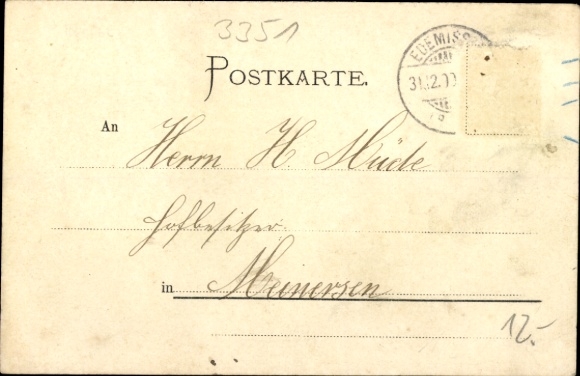 3351
POSTKARTE.
EDEMISS
31.12.00
An
Herrn H. Müde
Hofbesitzer
in Meinersen
12.-